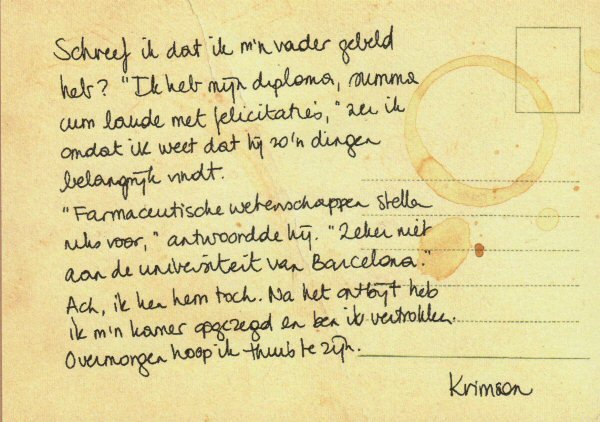 Schreef ik dat ik m'n vader gebeld
heb? "Ik heb mijn diploma, summa
cum laude met felicitaties," zei ik
omdat ik weet dat hij zo'n dingen
belangrijk vindt.
"Farmaceutische wetenschappen stellen
niks voor," antwoordde hij. "Zeker niet
aan de universiteit van Barcelona."
Ach, ik ken hem toch. Na het ontbijt heb
ik m'n kamer opgezegd en ben ik vertrokken.
Overmorgen hoop ik thuis te zijn.
Krimson